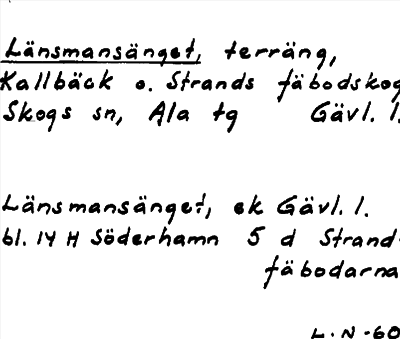 Länsmansänget, terräng,
Kallbäck o. Strands fäbodskog
Skogs sn, Ala tg Gävl. l.
Länsmansänget, ek Gävl. l.
bl. 14 H Söderhamn 5 d Strand-
fäbodarna
L. N -60